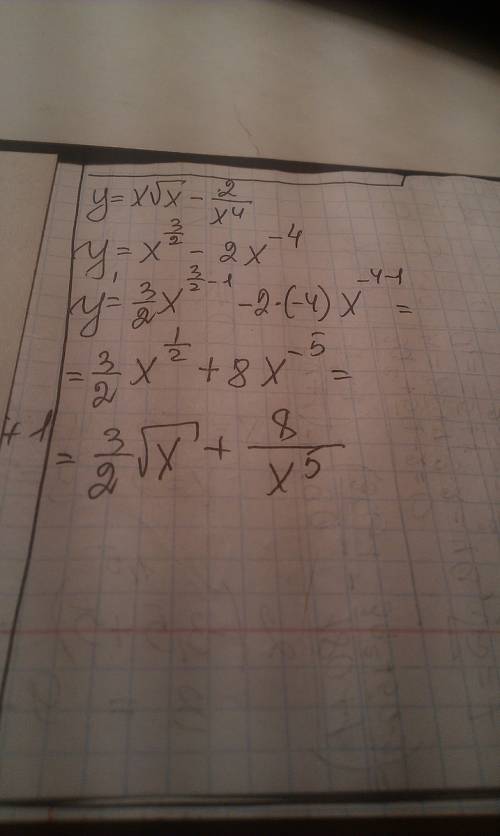 y = x√x - 2/x⁴
y = x^(3/2) - 2x^(-4)
y' = 3/2 x^(3/2 - 1) - 2·(-4) x^(-4-1) =
= 3/2 x^(1/2) + 8x^(-5) =
+ 1
= 3/2 √x + 8/x⁵